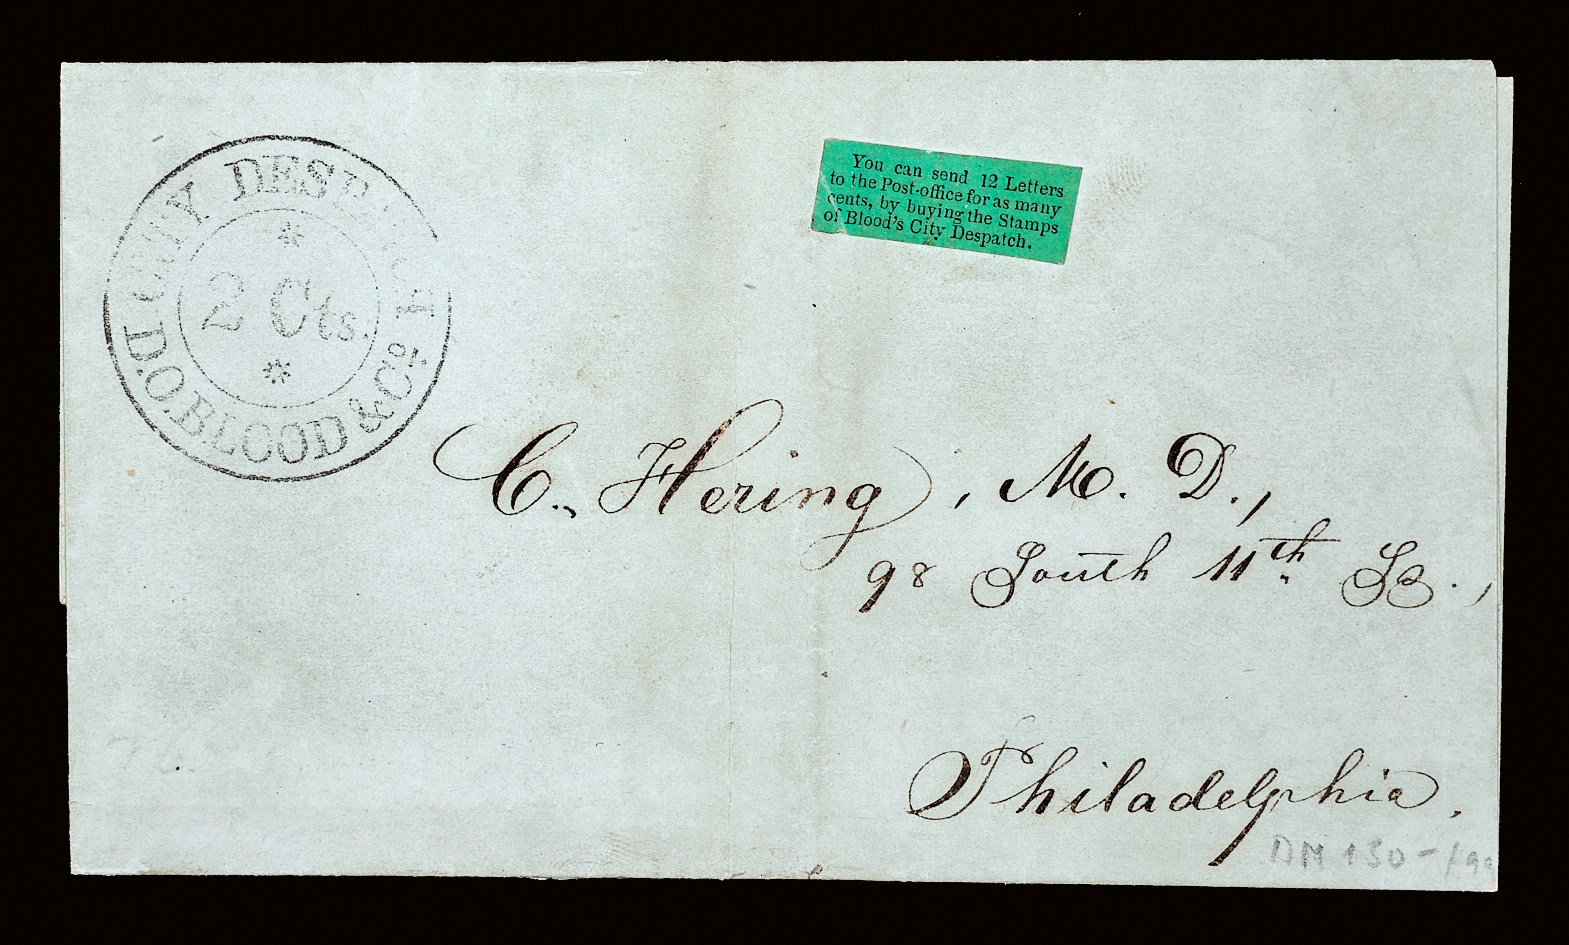 CITY DESPATCH
2 Cts.
D.O. BLOOD & Co's.
You can send 12 Letters
to the Post-office for as many
cents, by buying the Stamps
of Blood's City Despatch.
C. Hering, M. D.,
98 South 11th St.,
Philadelphia.
DM 130-